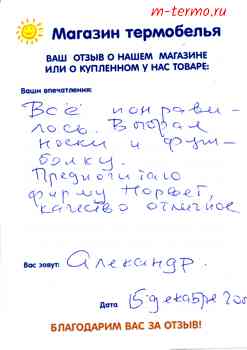 m-termo.ru
Магазин термобелья
ВАШ ОТЗЫВ О НАШЕМ МАГАЗИНЕ
ИЛИ О КУПЛЕННОМ У НАС ТОВАРЕ:
Ваши впечатления:
Всё понрави-
лось. Выбрал
носки и фут-
болку.
Предпочитаю
фирму Норвег,
качество отличное
Вас зовут: Александр.
Дата 15 декабря
БЛАГОДАРИМ ВАС ЗА ОТЗЫВ!